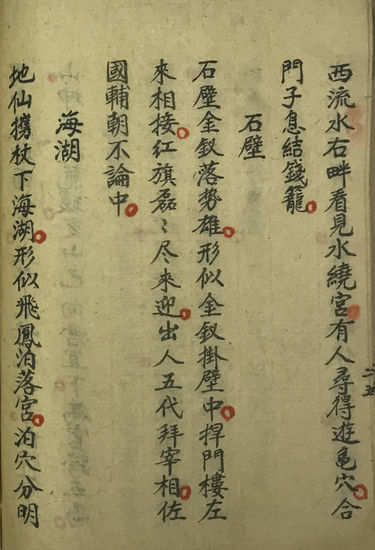 西流水右畔看見水繞宮有人尋得遊龟穴合
門子息結錢籠
石壁
石壁金釵落势雄形似金釵掛壁中捍門樓左
來相接红旗磊〻尽來迎出人五代拜宰相佐
國輔朝不論中
海湖
地仙携杖下海湖形似飛鳳泊落宮泊穴分明